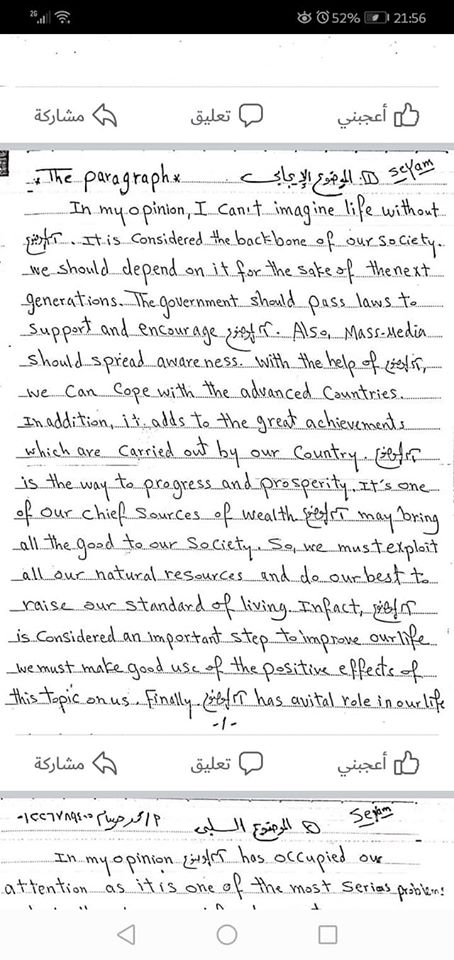 2G 52% 21:56
أعجبني تعليق مشاركة
*The paragraph* ① الموضوع الإيجابى seyam
In my opinion, I Can't imagine life without
. It is Considered the backbone of our society.
we should depend on it for the sake of the next
generations. The government should pass laws to
support and encourage . Also, Mass-Media
should spread awareness. with the help of ,
we Can Cope with the advanced Countries.
In addition, it adds to the great achievements
which are Carried out by our Country.
is the way to progress and prosperity. It's one
of our chief Sources of wealth. may bring
all the good to our Society. So, we must exploit
all our natural resources and do our best to
raise our standard of living. Infact,
is Considered an important step to improve our life
we must make good use of the positive effects of
this topic on us. Finally. has avital role in our life
-1-
أعجبني تعليق مشاركة
الموضوع السلبى Seyam
In my opinion has occupied our
attention as it is one of the most Serias problems